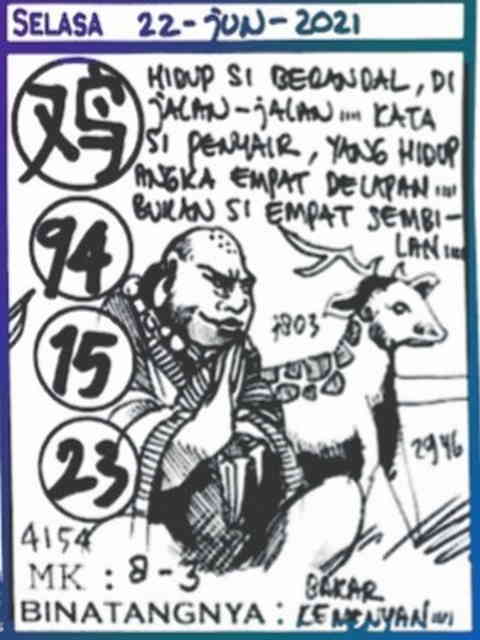 SELASA 22-JUN-2021
鸡
HIDUP SI BERANDAL, DI
JALAN-JALAN.... KATA
SI PENYAIR, YANG HIDUP
ANGKA EMPAT DELAPAN....
BUKAN SI EMPAT SEMBI-
LAN....
94
15
23
7803
2946
4154
MK : 8-3
BINATANGNYA : BAKAR
KEMENYAN....